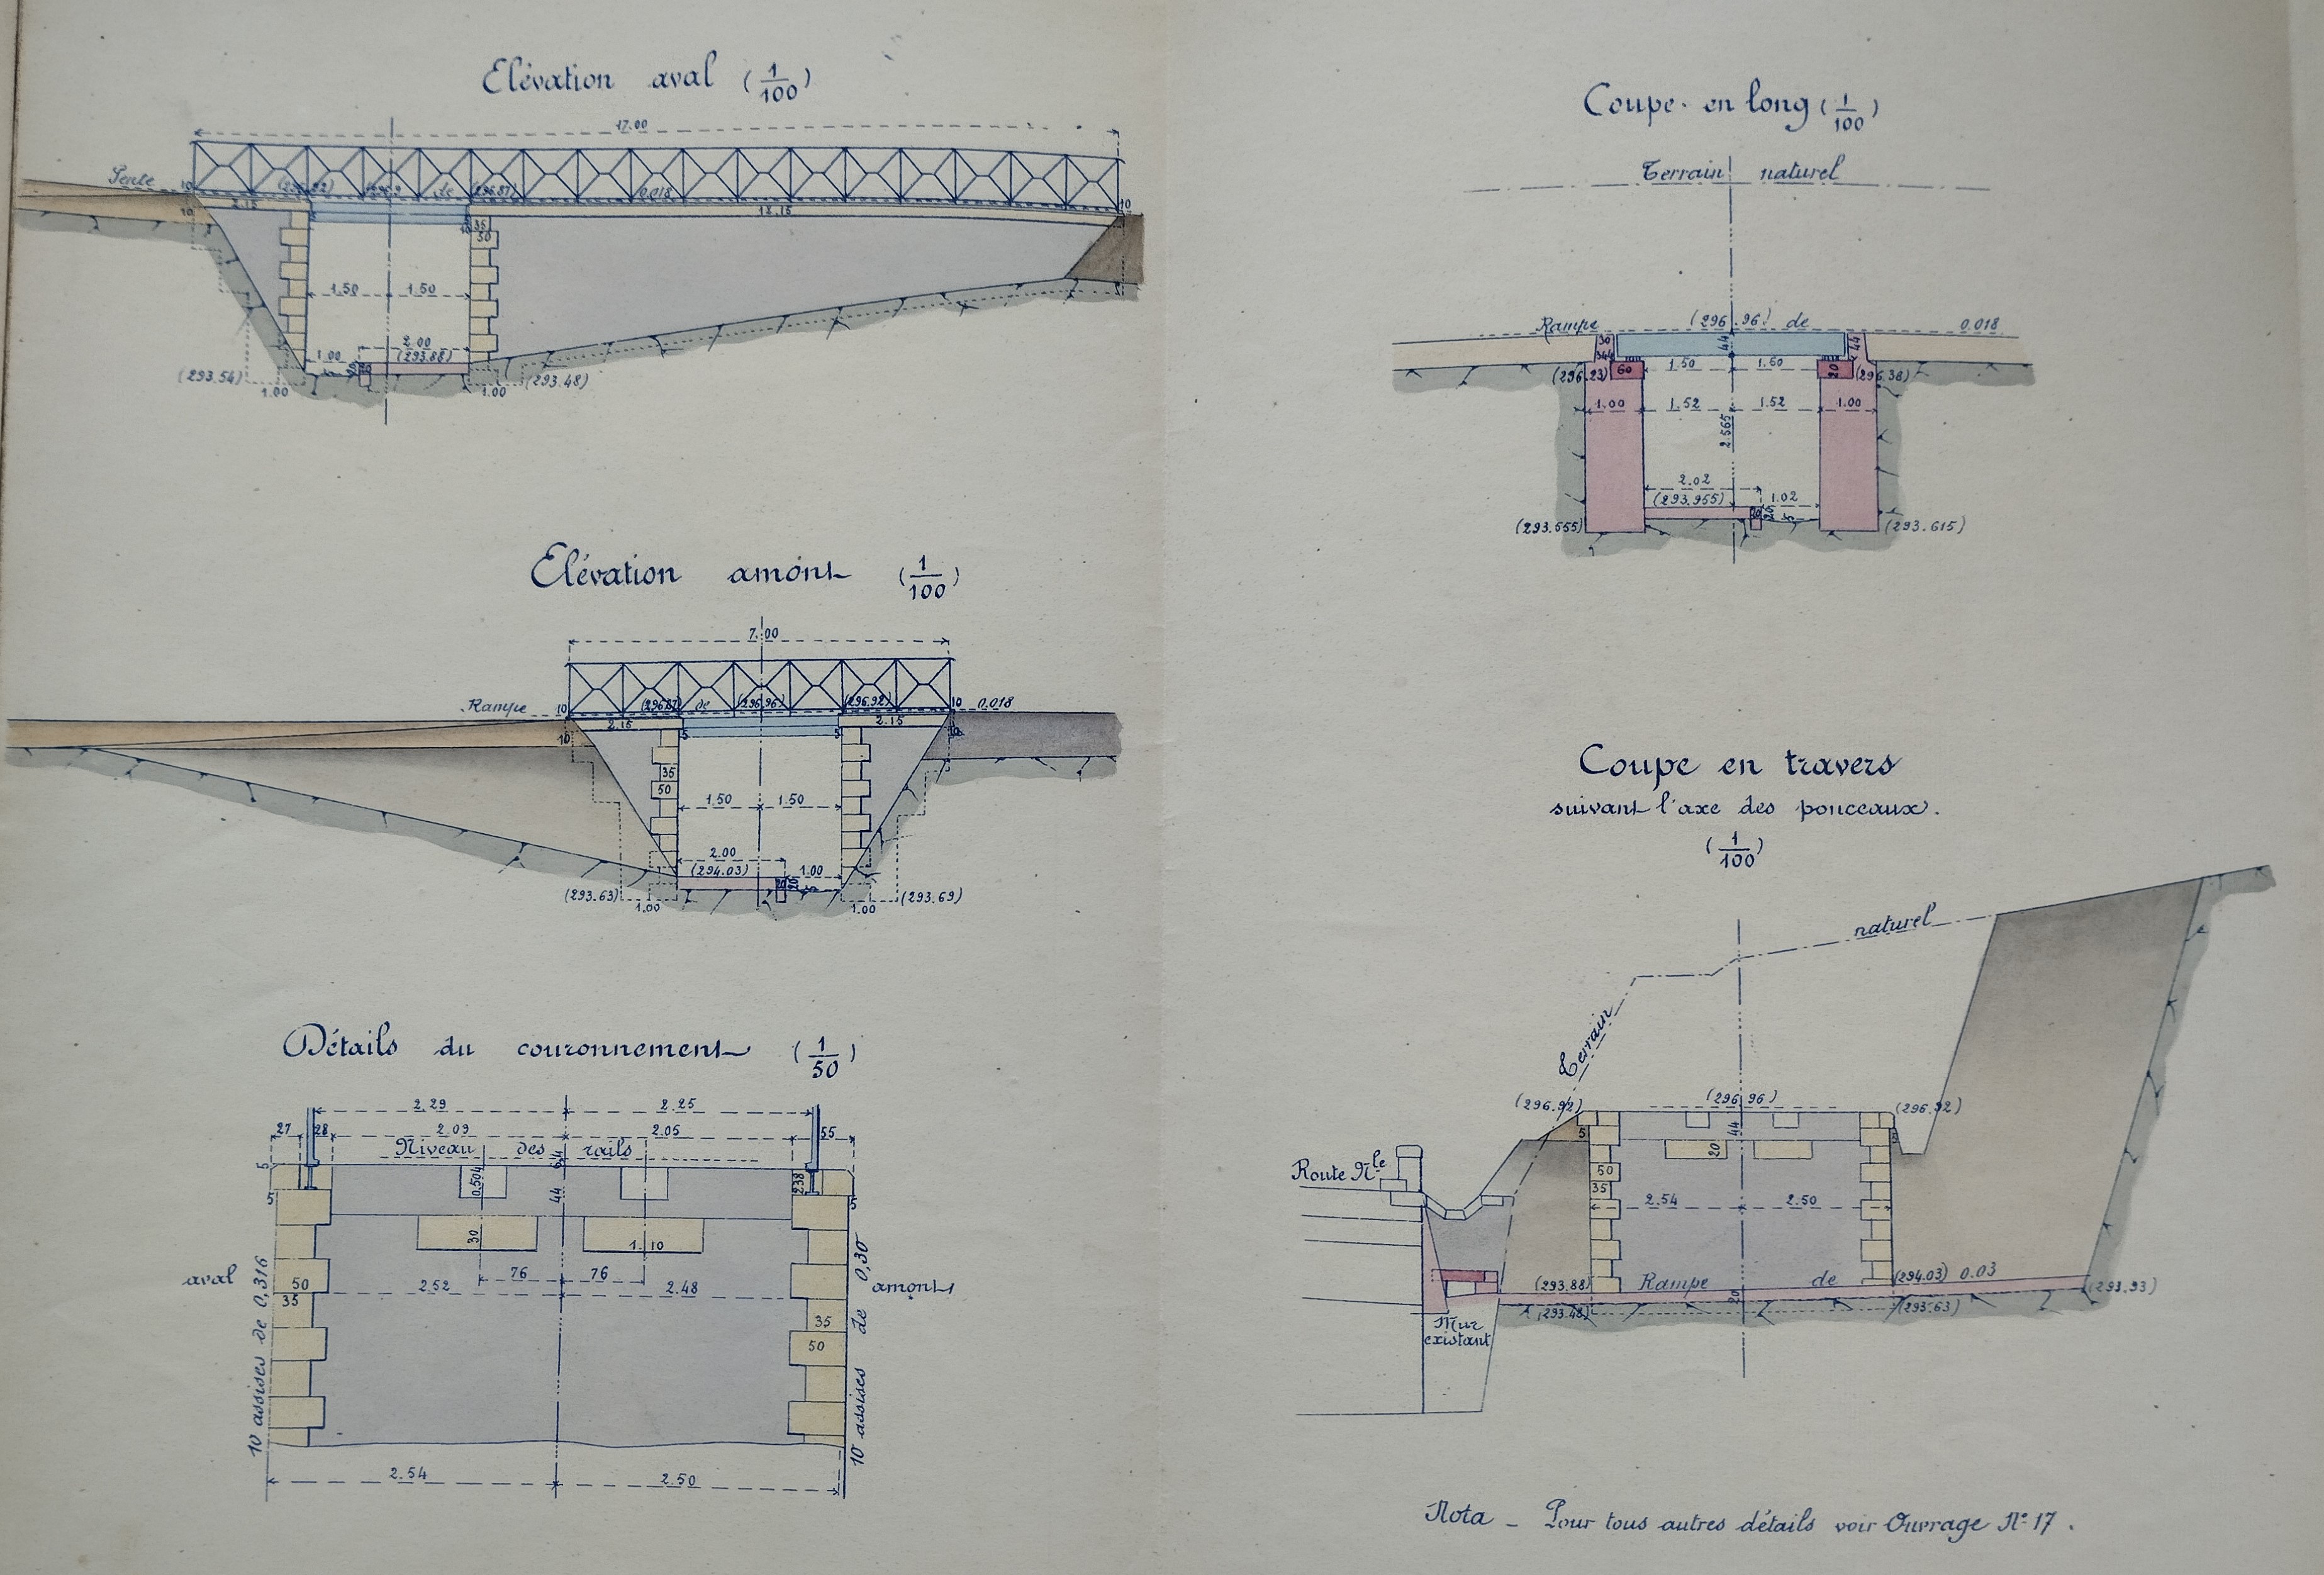 Elévation aval (1/100)
17.00
Pente (296.92) de (296.87) 0.018
10 10
10 2.15 18.15
35
50
1.50 1.50
2.00
1.00 (293.88)
(293.54) (293.48)
1.00 1.00
Elévation amont (1/100)
7.00
Rampe 10 (296.87) de (296.96) (296.92) 10 0.018
2.15 2.15
10 5 5 10
35
50
1.50 1.50
2.00
(294.03) 1.00
20 20 5
(293.63) (293.69)
1.00 1.00
Détails du couronnement (1/50)
2.29 2.25
27 28 2.09 2.05 55
Niveau des rails
5 0.504 44 238
5 5
30 1.10
76 76
aval 50 2.52 2.48 amont
35
35
50
10 assises de 0,316
10 assises de 0,30
2.54 2.50
Coupe en long (1/100)
Terrain naturel
Rampe (296.96) de 0.018
30 44 44
34
(296.23) 60 1.50 1.60 20 (296.38)
1.00 1.52 1.52 1.00
2.565
2.02
(293.955) 1.02
20 20 5
(293.655) (293.615)
Coupe en travers
suivant l'axe des ponceaux.
(1/100)
naturel
Terrain
(296.92) (296.96) (296.92)
5 44
20
Route Nle
50
35
2.54 2.50
(293.88) Rampe de (294.03) 0.03 (293.93)
20
(293.48) (293.63)
Mur
existant
Nota _ Pour tous autres détails voir Ouvrage N° 17.